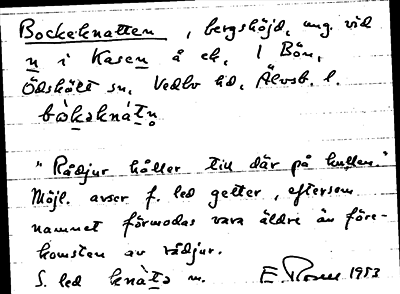 Bockeknatten, bergshöjd, ung. vid
n i Kasen å ek. 1 Bön,
Ödskölt sn, Vedbo hd, Älvsb. l.
bò̀kəknàtn̥
"Rådjur håller till där på kullen."
Möjl. avser f. led getter, eftersom
namnet förmodas vara äldre än före-
komsten av rådjur.
S. led knàtə m. E. Rosn 1953